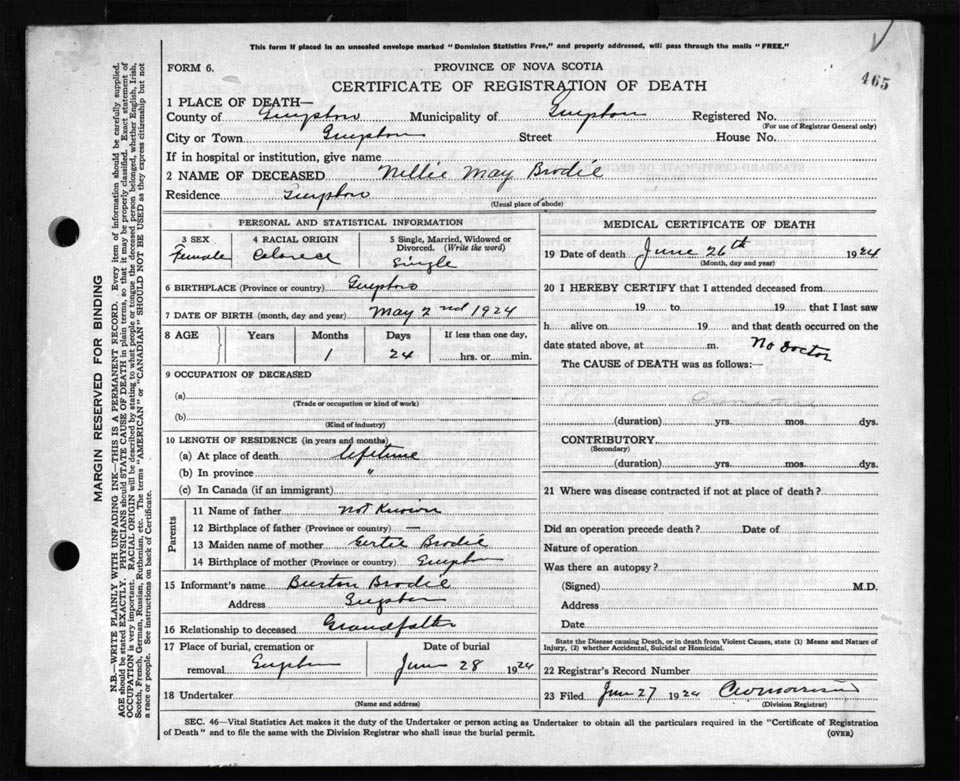 This form if placed in an unsealed envelope marked "Dominion Statistics Free," and properly addressed, will pass through the mails "FREE."
FORM 6.
PROVINCE OF NOVA SCOTIA
465
CERTIFICATE OF REGISTRATION OF DEATH
1 PLACE OF DEATH—
County of Municipality of Registered No.
(For use of Registrar General only)
City or Town Street House No.
If in hospital or institution, give name
2 NAME OF DECEASED Nellie May Brodie
Residence
(Usual place of abode)
PERSONAL AND STATISTICAL INFORMATION
3 SEX 4 RACIAL ORIGIN 5 Single, Married, Widowed or Divorced. (Write the word)
Female Colored Single
6 BIRTHPLACE (Province or country)
7 DATE OF BIRTH (month, day and year) May 2nd 1924
8 AGE Years Months Days If less than one day,
1 24 hrs. or min.
9 OCCUPATION OF DECEASED
(a)
(Trade or occupation or kind of work)
(b)
(Kind of industry)
10 LENGTH OF RESIDENCE (in years and months)
(a) At place of death lifetime
(b) In province "
(c) In Canada (if an immigrant)
Parents
11 Name of father not Known
12 Birthplace of father (Province or country) —
13 Maiden name of mother Gertie Brodie
14 Birthplace of mother (Province or country)
15 Informant's name Burton Brodie
Address
16 Relationship to deceased Grandfather
17 Place of burial, cremation or removal Date of burial
June 28 1924
18 Undertaker
(Name and address)
MEDICAL CERTIFICATE OF DEATH
19 Date of death June 26th 1924
(Month, day and year)
20 I HEREBY CERTIFY that I attended deceased from
19 to 19 that I last saw
h alive on 19 and that death occurred on
date stated above, at m. No Doctor
The CAUSE of DEATH was as follows:—
(duration) yrs. mos. dys.
CONTRIBUTORY
(Secondary)
(duration) yrs. mos. dys.
21 Where was disease contracted if not at place of death?
Did an operation precede death? Date of
Nature of operation
Was there an autopsy?
(Signed) M.D.
Address
Date
State the Disease causing Death, or in death from Violent Causes, state (1) Means and Nature of
Injury, (2) whether Accidental, Suicidal or Homicidal.
22 Registrar's Record Number
23 Filed June 27 1924
(Division Registrar)
SEC. 46—Vital Statistics Act makes it the duty of the Undertaker or person acting as Undertaker to obtain all the particulars required in the "Certificate of Registration
of Death" and to file the same with the Division Registrar who shall issue the burial permit.
(OVER)
MARGIN RESERVED FOR BINDING
N.B.—WRITE PLAINLY WITH UNFADING INK—THIS IS A PERMANENT RECORD. Every item of information should be carefully supplied.
AGE should be stated EXACTLY. PHYSICIANS should STATE CAUSE OF DEATH in plain terms, so that it may be properly classified. Exact statement of
OCCUPATION is very important. RACIAL ORIGIN will be described by stating to what people or tongue the deceased person belonged, whether English, Irish,
Scotch, French, German, Russian, Ruthenian, etc. The terms "AMERICAN" or "CANADIAN" SHOULD NOT BE USED as they express citizenship but not
a race or people. See instructions on back of Certificate.